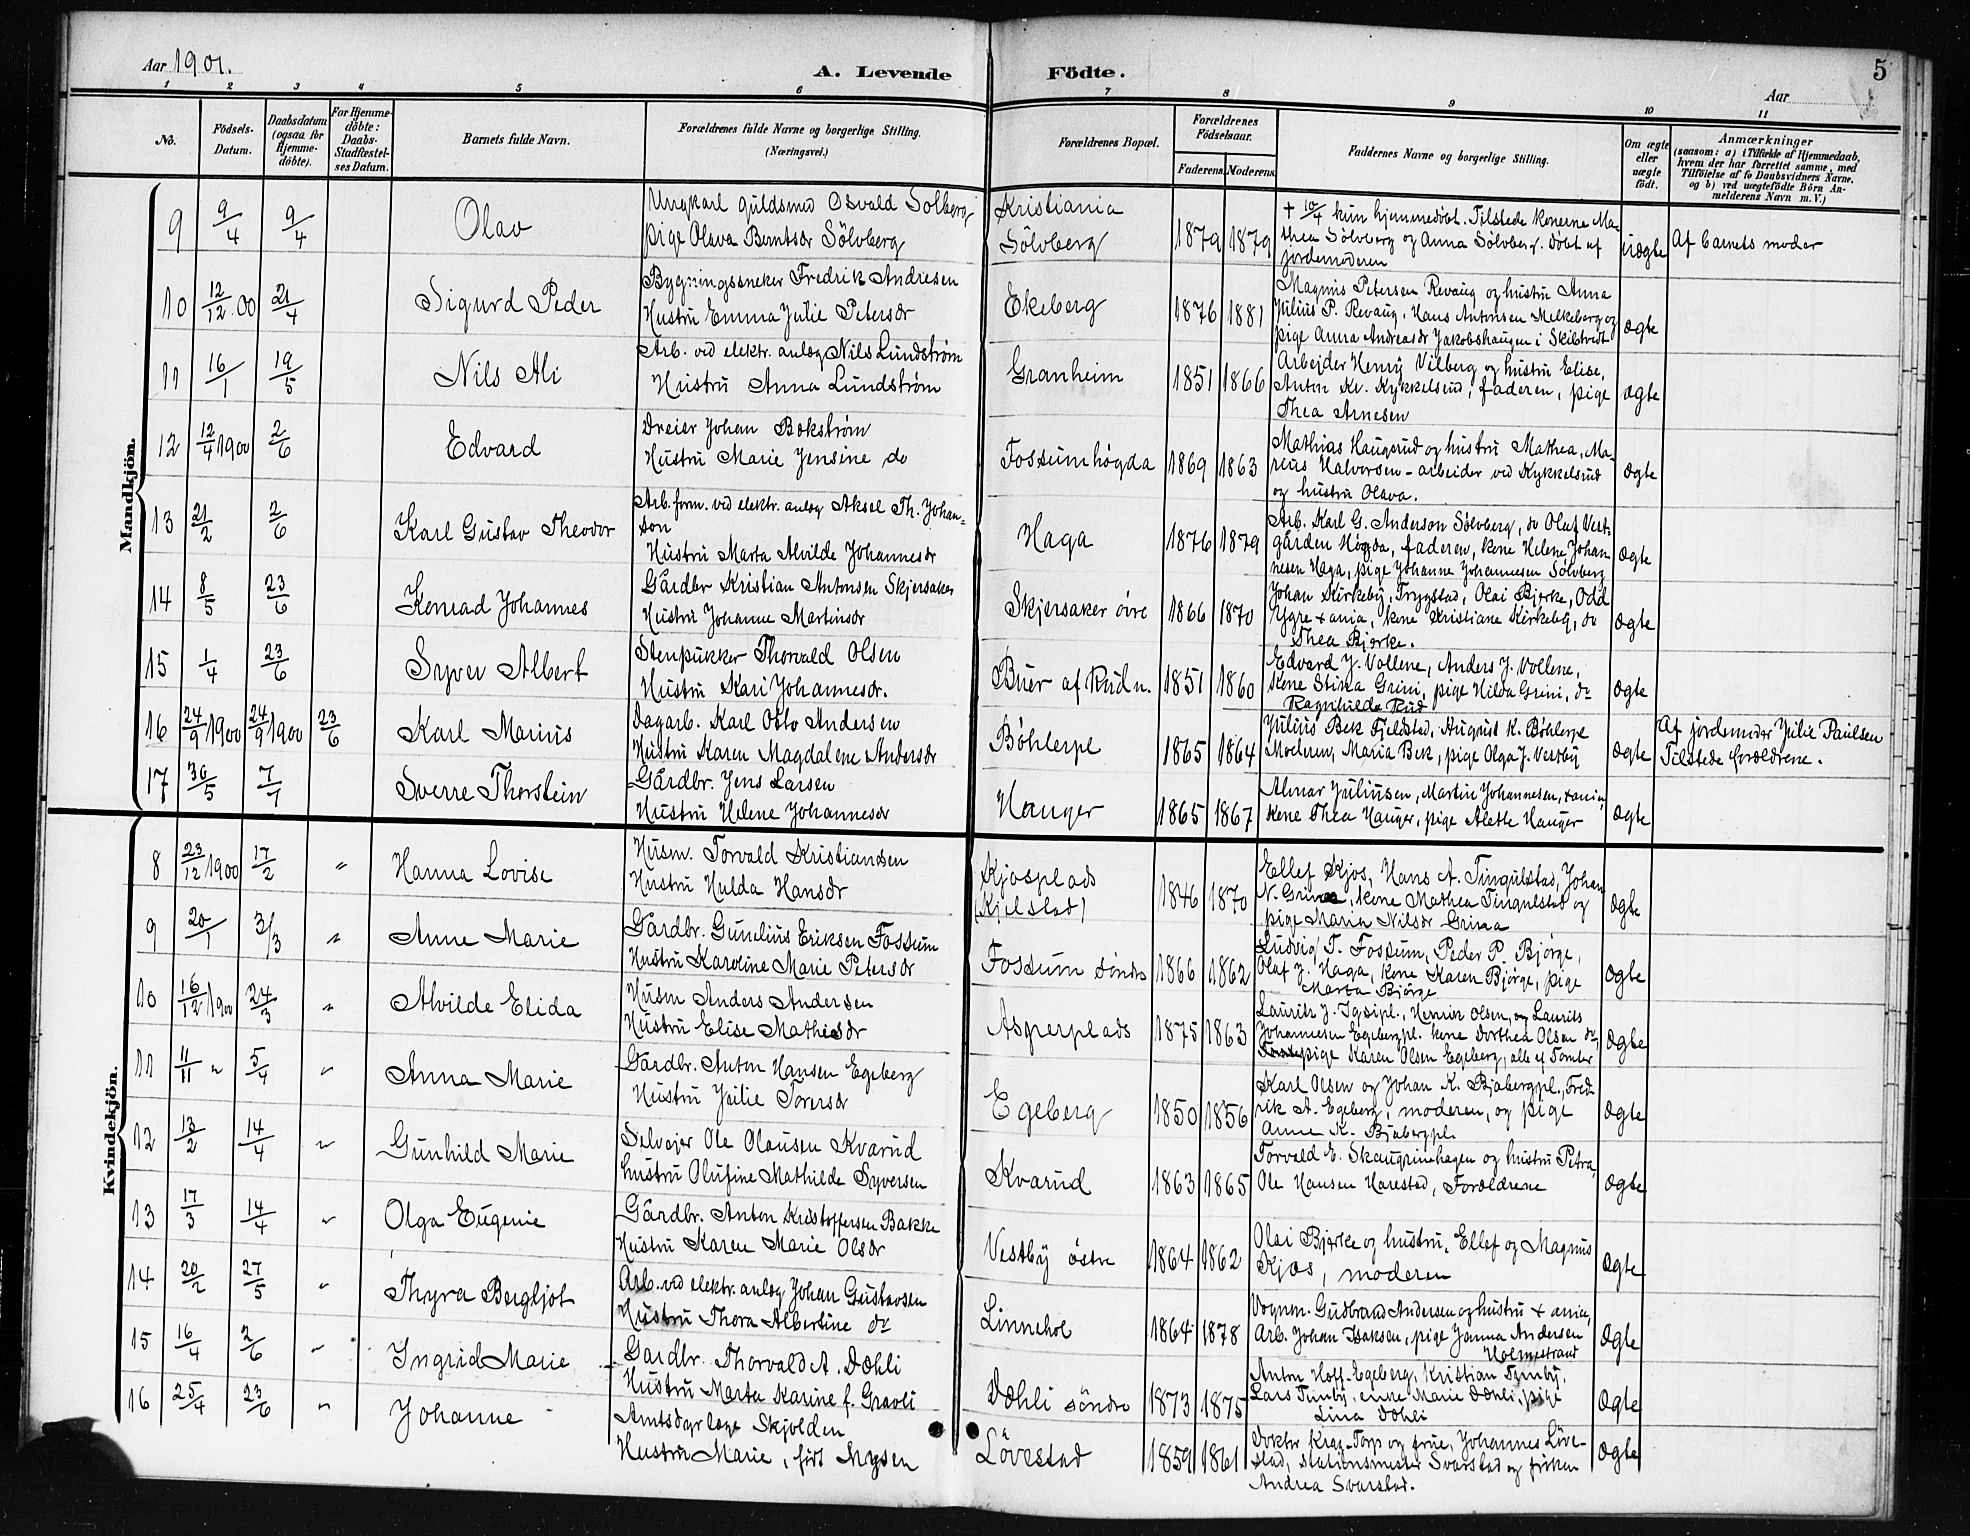 Aar 1901. A. Levende Födte. 5
Aar
1 2 3 4 5 6 7 8 9 10 11
No. Födsels-Datum. Daabsdatum (ogsaa for Hjemme-döbte). For Hjemme-döbte: Daabs-Stadfæstel-ses Datum. Barnets fulde Navn. Forældrenes fulde Navne og borgerlige Stilling. (Næringsvei.) Forældrenes Bopæl. Forældrenes Födselsaar. Faderens. Moderens. Faddernes Navne og borgerlige Stilling. Om ægte eller uægte födt. Anmærkninger (saasom: a) i Tilfælde af Hjemmedaab, hvem der har forrettet samme, med Tilföielse af to Daabsvidners Navne, og b) ved uægtefödte Börn An-melderens Navn m.V.)
Mandkjön.
9 9/4 9/4 Olav Ungkarl guldsmed Osvald Solberg Kristiania 1879 1879 + 10/4 kun hjemmedöbt. Tilstede konerne Ma- uægte Af barnets moder
pige Olava Berntsdr Sölvberg Sölvberg thea Sölvberg og Anna Sölvberg. Döbt af
jordemoderen
10 12/12 00 21/4 Sigurd Peder Bygningssneker Fredrik Andresen Ekeberg 1876 1881 Magnus Petersen Revaug og hustru Anna ægte
Hustru Emma Julie Petersdr Julius P. Revaug, Hans Antonsen Melkeberg og
pige Anna Andreasdr Jakobshaugen i Skibtvedt
11 16/1 19/5 Nils Ali Arb. ved elektr. anlæg Nils Lundström Granheim 1851 1866 Arbejder Henry Vilberg og hustru Elise, ægte
Hustru Anna Lundström Anton Kr. Kykkelsrud, faderen, pige
Thea Arnesen
12 12/4 1900 2/6 Edvard Dreier Johan Bokström Fossumhögda 1869 1863 Mathias Haugsrud og hustru Mathea, Ma- ægte
Hustru Marie Jensine do rius Halvorsen - arbeider ved Kykkelsrud
og hustru Olava.
13 21/2 2/6 Karl Gustav Theodor Arb.form. ved elektr. anlæg Aksel Th. Johan- Haga 1876 1879 Arb. Karl G. Anderson Sölvberg, do Olaf Vest- ægte
son gården Högda, faderen, kone Helene Johan-
Hustru Marta Alvilde Johannesdr nesen Haga, pige Johanne Johannesen Sölvberg
14 8/5 23/6 Konrad Johannes Gårdbr Kristian Antonsen Skjersaker Skjersaker övre 1866 1870 Johan Kirkeby, Trygstad, Olai Bjerke, Odd ægte
Hustru Johanne Martinsdr Kristiane Kirkeby, do
Thea Bjerke.
15 1/4 23/6 Syver Albert Stenpukker Thorvald Olsen Buer af Rud n. 1851 1860 Edvard J. Vollene, Anders J. Vollene, ægte
Hustru Kari Johannesdr. kone Stina Grini, pige Hilda Grini, do
Ragnhilda Rud
16 24/9 1900 24/9 1900 23/6 Karl Marius Dagarb. Karl Otto Andersen Böhlerpl 1865 1864 Julius Bek Fjeldstad, August K. Böhlerpl ægte Af jordemoder Julie Paulsen
Hustru Karen Magdalene Andersdr Moderen, Maria Bek, pige Olga J. Vestby Tilstede forældrene.
17 30/5 7/7 Sverre Thorstein Gårdbr. Jens Larsen Hauger 1865 1867 Almar Juliusen, Martin Johannesen, ægte
Hustru Helene Johannesdr kone Thea Hauger, pige Alette Hauger
Kvindekjön.
8 23/12 1900 17/2 " Hanna Lovise Husm. Torvald Kristiansen Kjosplads 1846 1870 Ellef Kjos, Hans A. Tingulstad, Johan ægte
Hustru Hulda Hansdr (Kjelstad) N. Grina, kone Mathea Tingulstad og
pige Maria Nilsdr Grina
9 20/1 3/3 " Anne Marie Gårdbr. Gunelius Eriksen Fossum Fossum söndre 1866 1862 Ludvig T. Fossum, Peder P. Bjørge, ægte
Hustru Karoline Marie Petersdr Olaf J. Haga, kone Karen Bjørge, pige
Marta Bjørge
10 16/12 1900 24/3 " Alvilde Elida Husm Anders Andersen Asperplads 1875 1863 Henrik Olsen, og Laurits ægte
Hustru Elise Mathisdr Johannesen Egebergpl. kone Dorthea Olsen do,
pige Karen Olsen Egeberg, alle af Tomter
11 11/11 " 5/4 " Anna Marie Gårdbr. Anton Hansen Egeberg Egeberg 1850 1856 Karl Olsen og Johan K. Bjabergpl., Fred- ægte
Hustru Julie Toversdr rik A. Egeberg, moderen, og pige
Anne K. Bjabergpl.
12 13/2 14/4 " Gunhild Marie Selvejer Ole Olausen Kvarud Kvarud 1863 1865 Torvald E. Skaugrimhagen og hustru Petra, ægte
hustru Olufine Mathilde Syversen Ole Hansen Harestad, Forældrene
13 17/3 14/4 " Olga Eugenie Gårdbr. Anton Kristoffersen Bakke Vestby östre 1864 1862 Olai Bjerke og hustru, Ellef og Magnus ægte
Hustru Karen Marie Olsdr Kjos, moderen
14 20/2 27/5 " Thyra Bergljot Arb. ved elektr. anlæg Johan Gustavsen Linnehol 1864 1878 Vognm. Gudbrand Andersen og hustru ægte
Hustru Thora Albertine do Arb. Johan Isaksen, pige Janna Andersen
Holmestrand
15 16/4 2/6 " Ingrid Marie Gårdbr. Thorvald A. Dæhli Dæhli söndre 1873 1875 Anton Hoff-Egeberg, Kristian Tømby, ægte
Hustru Marta Karine f. Gravli Lars Tømby, enke Marie Dæhli, pige
Lina Dæhli
16 25/4 23/6 " Johanne Amtsdyrlæge Skjolden Lövestad 1859 1861 Doktor Krag-Torp og frue, Johannes Löve- ægte
Hustru Marie, født Mysen stad, stationsmester Svarstad og fröken
Andrea Svarstad.